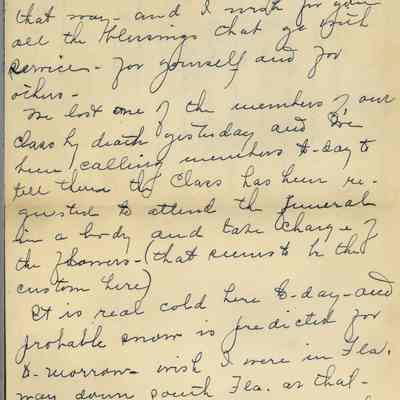 that way - and I wish for you
all the blessings that go with
service - for yourself and for
others -
We lost one of the members of our
Class by death yesterday and I've
been calling members to-day to
tell them the Class has been re-
quested to attend the funeral
in a body and take charge of
the flowers - (that seems to be the
custom here)
It is real cold here to-day - and
probable snow is predicted for
to-morrow - wish I were in Fla.
way down south Fla. at that -